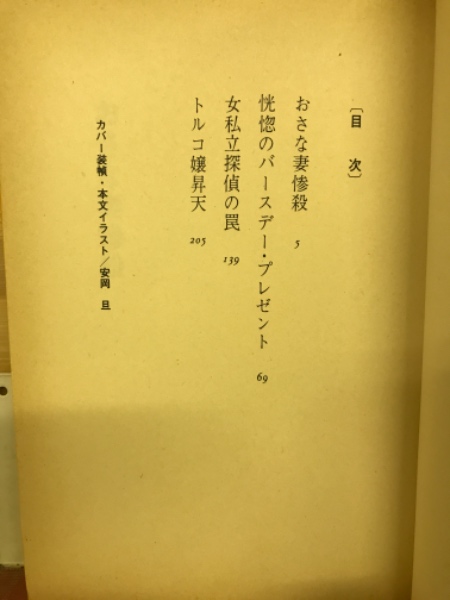 〔目次〕
おさな妻惨殺 5
恍惚のバースデー・プレゼント 69
女私立探偵の罠 139
トルコ嬢昇天 205
カバー装幀・本文イラスト/安岡 旦